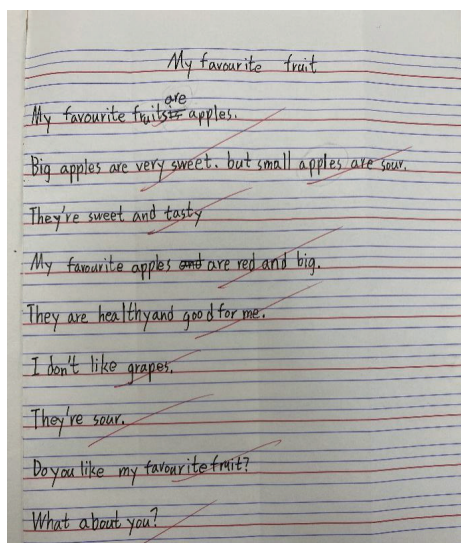 My favourite fruit
My favourite fruits are apples.
Big apples are very sweet. but small apples are sour.
They're sweet and tasty
My favourite apples are red and big.
They are healthy and good for me.
I don't like grapes.
They're sour.
Do you like my favourite fruit?
What about you?